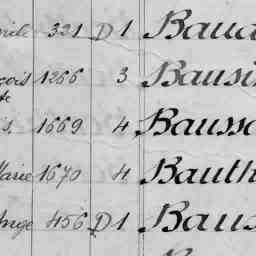 321 D 1 Baud
1266 3 Bausi
s. 1669 4 Bausso
Marie 1670 4 Bauth
Ange 456 D 1 Baus